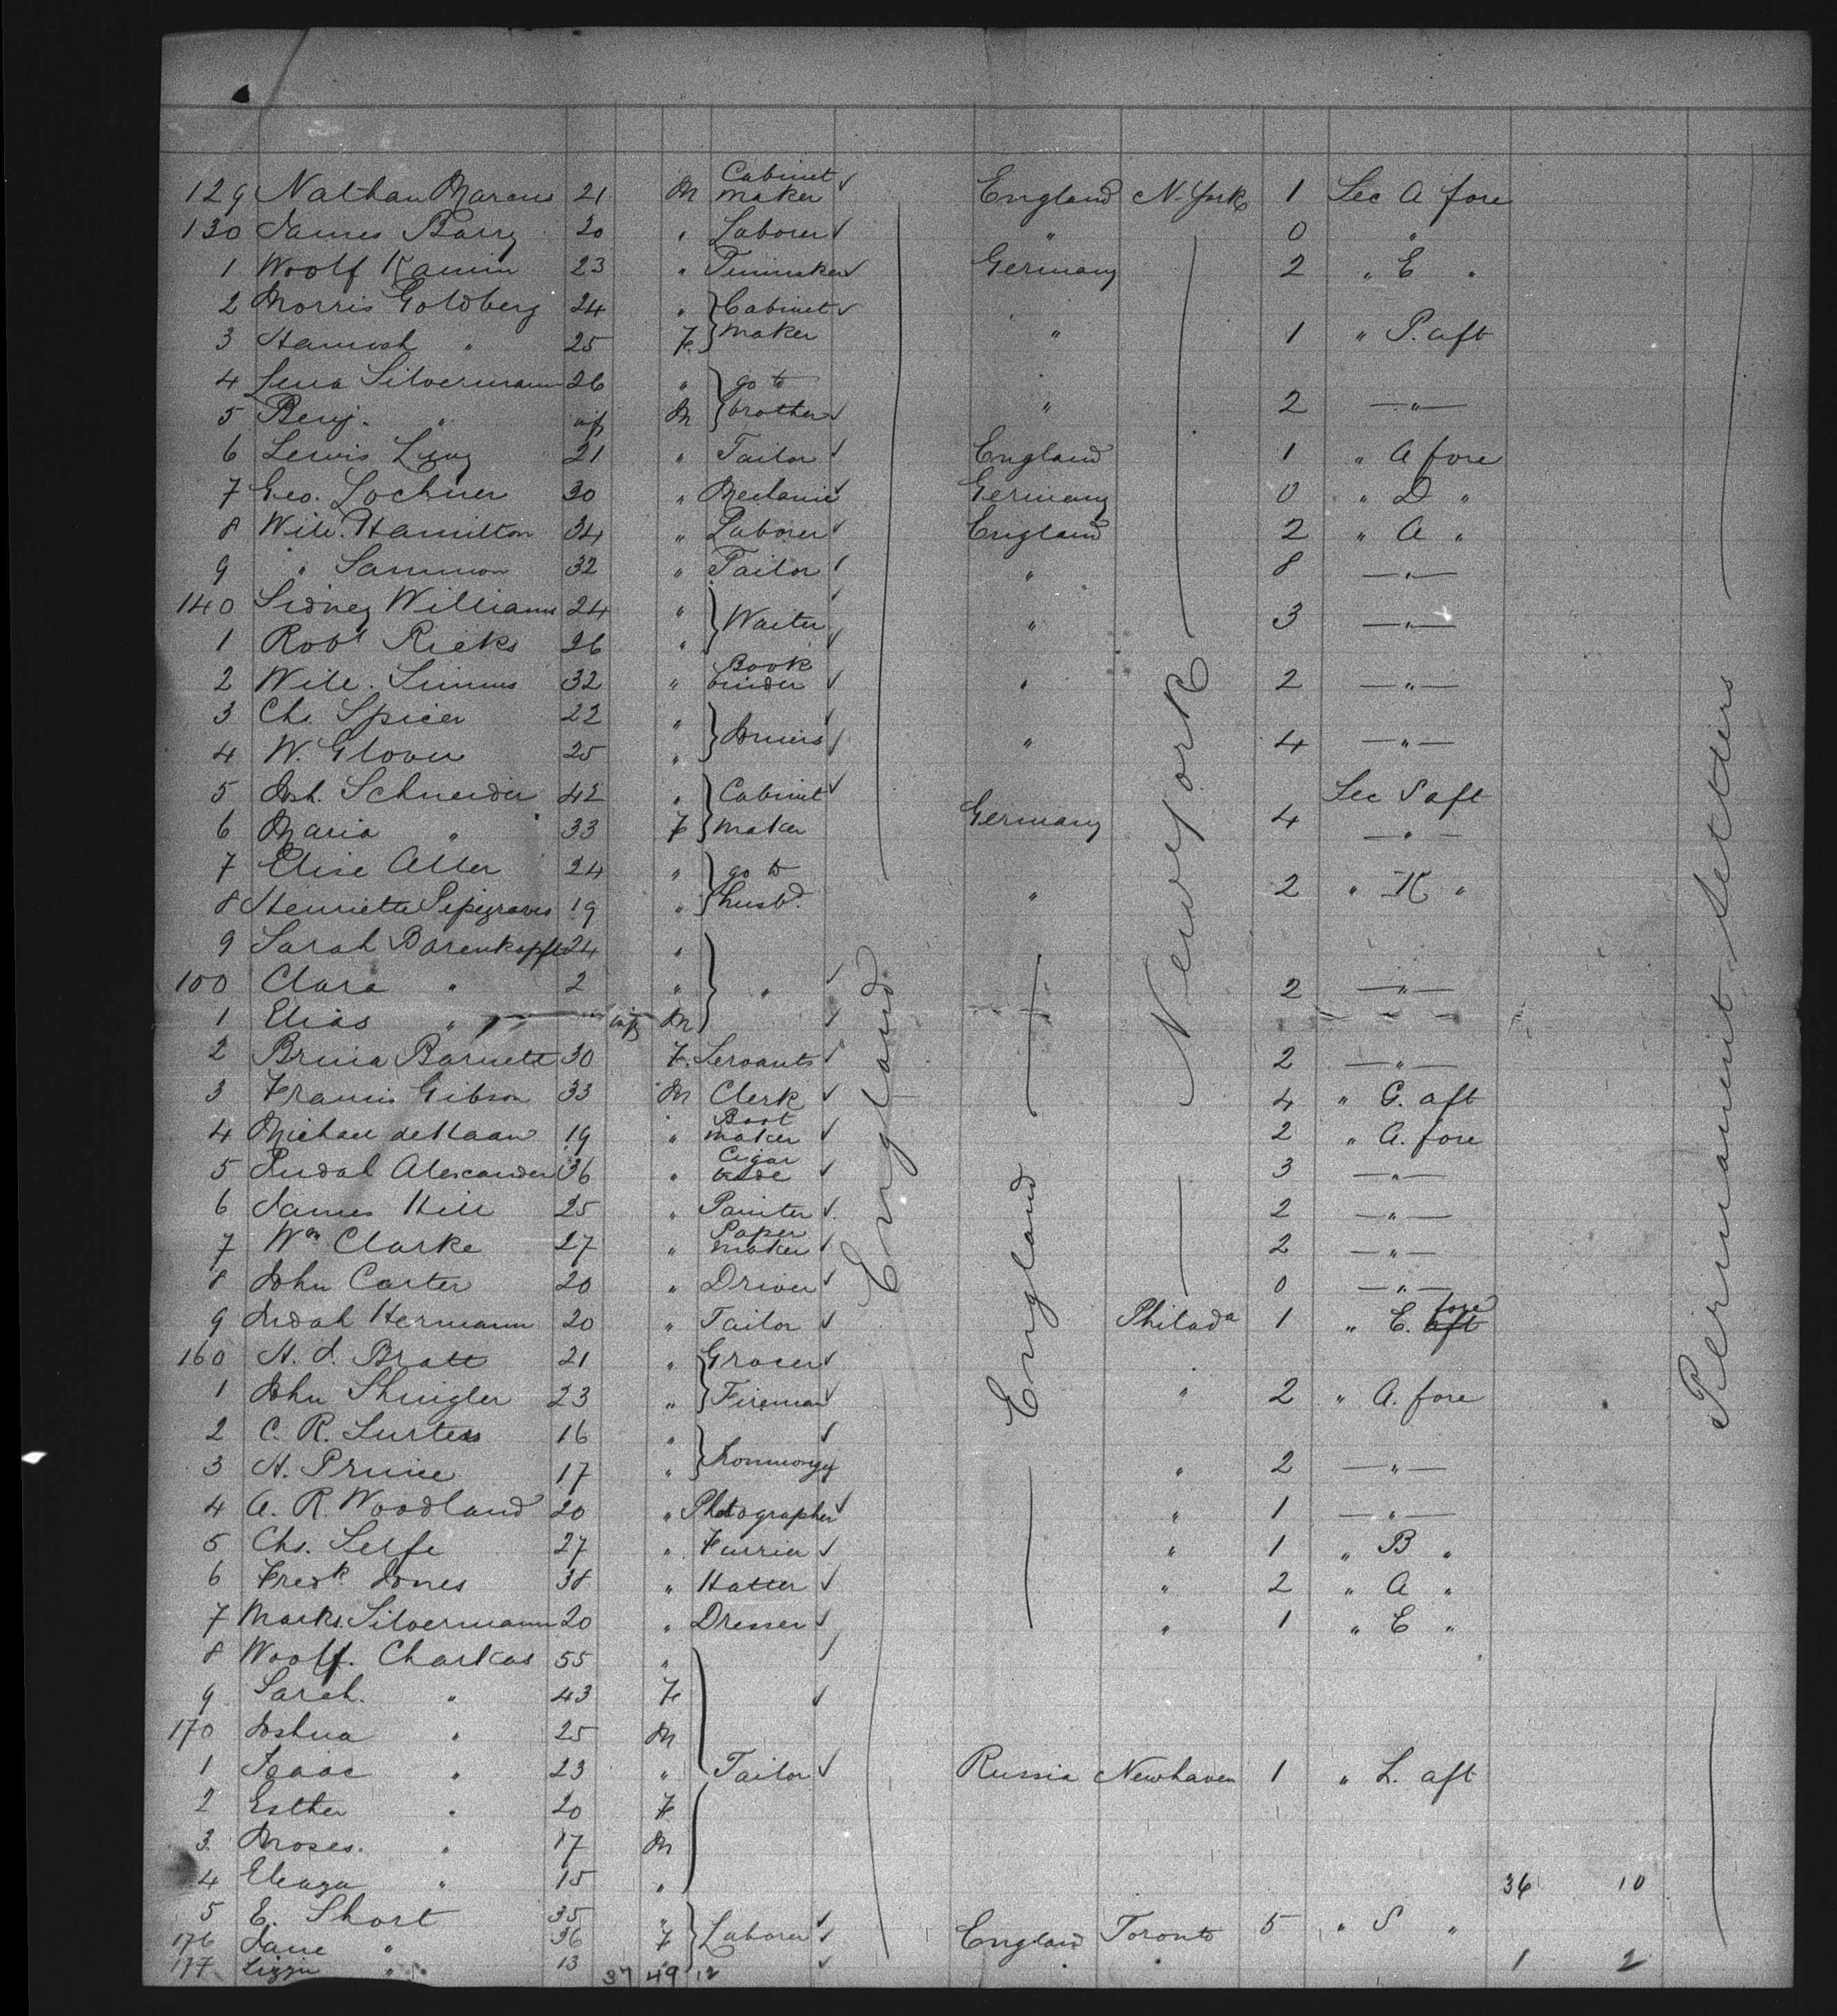 129 Nathan Marcus 21 M Cabinet maker ✓ England N. York 1 Sec A fore
130 James Barry 20 " Laborer ✓ " 0 "
1 Woolf Kamin 23 " ✓ Germany 2 " E "
2 Morris Goldberg 24 " } Cabinet ✓
3 Hannah " 25 F } maker " 1 " P. aft
4 Lena Silvermann 26 " } go to
5 Benj. " inf M } brother ✓ " 2 — " —
6 Lewis Levy 21 " Tailor ✓ England 1 " A fore
7 Geo. Lochner 30 " Mechanic ✓ Germany 0 " D "
8 Will. Hamilton 34 " Laborer ✓ England 2 " A "
9 " Sammon 32 " Tailor ✓ " 8 — " —
140 Sidney Williams 24 " } Waiter ✓ " 3 — " —
1 Robt Ricks 26 " } ✓
2 Will. Simms 32 " Book binder ✓ " 2 — " —
3 Chs. Spicer 22 " } ✓
4 W. Glover 25 " } ✓ " 4 — " —
5 Jos. Schneider 42 " } Cabinet ✓ Sec S aft
6 Maria " 33 F } maker Germany 4 — " —
7 Elise Aller 24 " } go to
8 Henriette 19 " } husbd. " 2 " K "
9 Sarah Barenkopf 24 "
100 Clara " 2 " } " ✓ 2 — " —
1 Elias " inf M ✓
2 Brina Barnett 30 F. Servants ✓ 2 — " —
3 Francis Gibson 33 M Clerk ✓ 4 " G. aft
4 Michael deHaan 19 " Boot maker ✓ 2 " A. fore
5 Judah Alexander 36 " Cigar trade ✓ 3 — " —
6 James Hill 25 " Painter ✓ 2 — " —
7 Wm Clarke 27 " Paper maker ✓ 2 — " —
8 John Carter 20 " Driver ✓ 0 — " —
9 Judah Hermann 20 " Tailor ✓ Philada 1 " E. aft fore
160 H. J. Bratt 21 " } Grocer ✓
1 John Shingler 23 " } Fireman ✓ " 2 " A. fore
2 C. R. 16 " } ✓
3 H. Prince 17 " } Ironmonger " 2 — " —
4 A. R. Woodland 20 " Photographer ✓ " 1 — " —
5 Chs. Selfe 27 " Furrier ✓ " 1 " B "
6 Fredk Jones 38 " Hatter ✓ " 2 " A "
7 Marks. Silvermann 20 " Dresser ✓ " 1 " E "
8 Woolf. Charkas 55 " ✓
9 Sarah. " 43 F ✓
170 Joshua " 25 M
1 Isaac " 23 " Tailor ✓ Russia Newhaven 1 " L. aft
2 Esther " 20 F
3 Moses. " 17 M
4 " 15 " 36 10
5 E. Short 35 " ✓
176 Jane " 36 F } Laborer ✓ England Toronto 5 " S "
177 Lizzie " 13 " ✓ " " 1 2
37 49 12
England
England
New York
Permanent Settlers